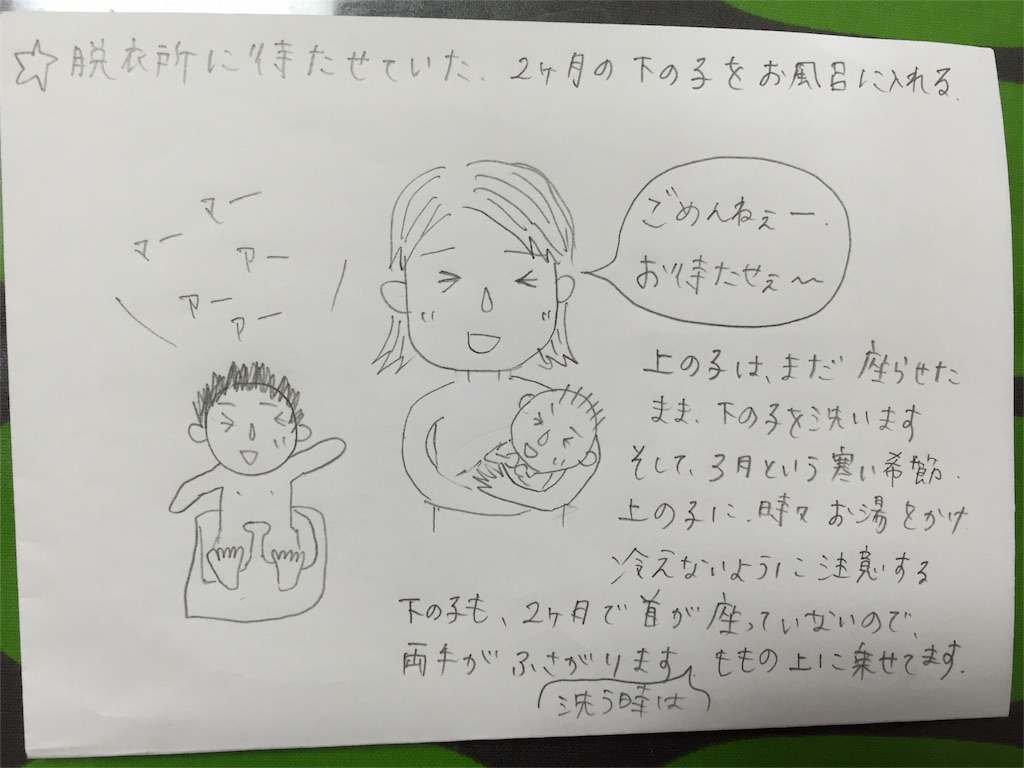 ☆脱衣所に待たせていた、2ヶ月の下の子をお風呂に入れる。
マー
マー
アー
アー
アー
ごめんねぇー。
お待たせぇ〜
上の子は、まだ座らせた
まま、下の子を洗います
そして、3月という寒い希節。
上の子に、時々お湯をかけ
冷えないように注意する
下の子も、2ヶ月で首が座っていないので、
両手がふさがります。ももの上に乗せてます。
洗う時は